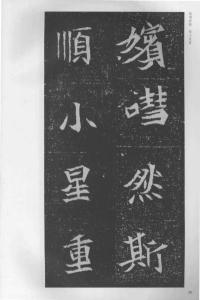 嬪嘒然斯
順小星重